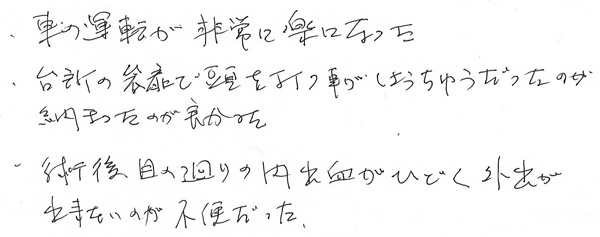 ・車の運転が非常に楽になった
・台所の袋棚で頭を打つ事がしょうちゅうだったのが
納まったのが良かった
・術後目の廻りの内出血がひどく外出が
出来ないのが不便だった.